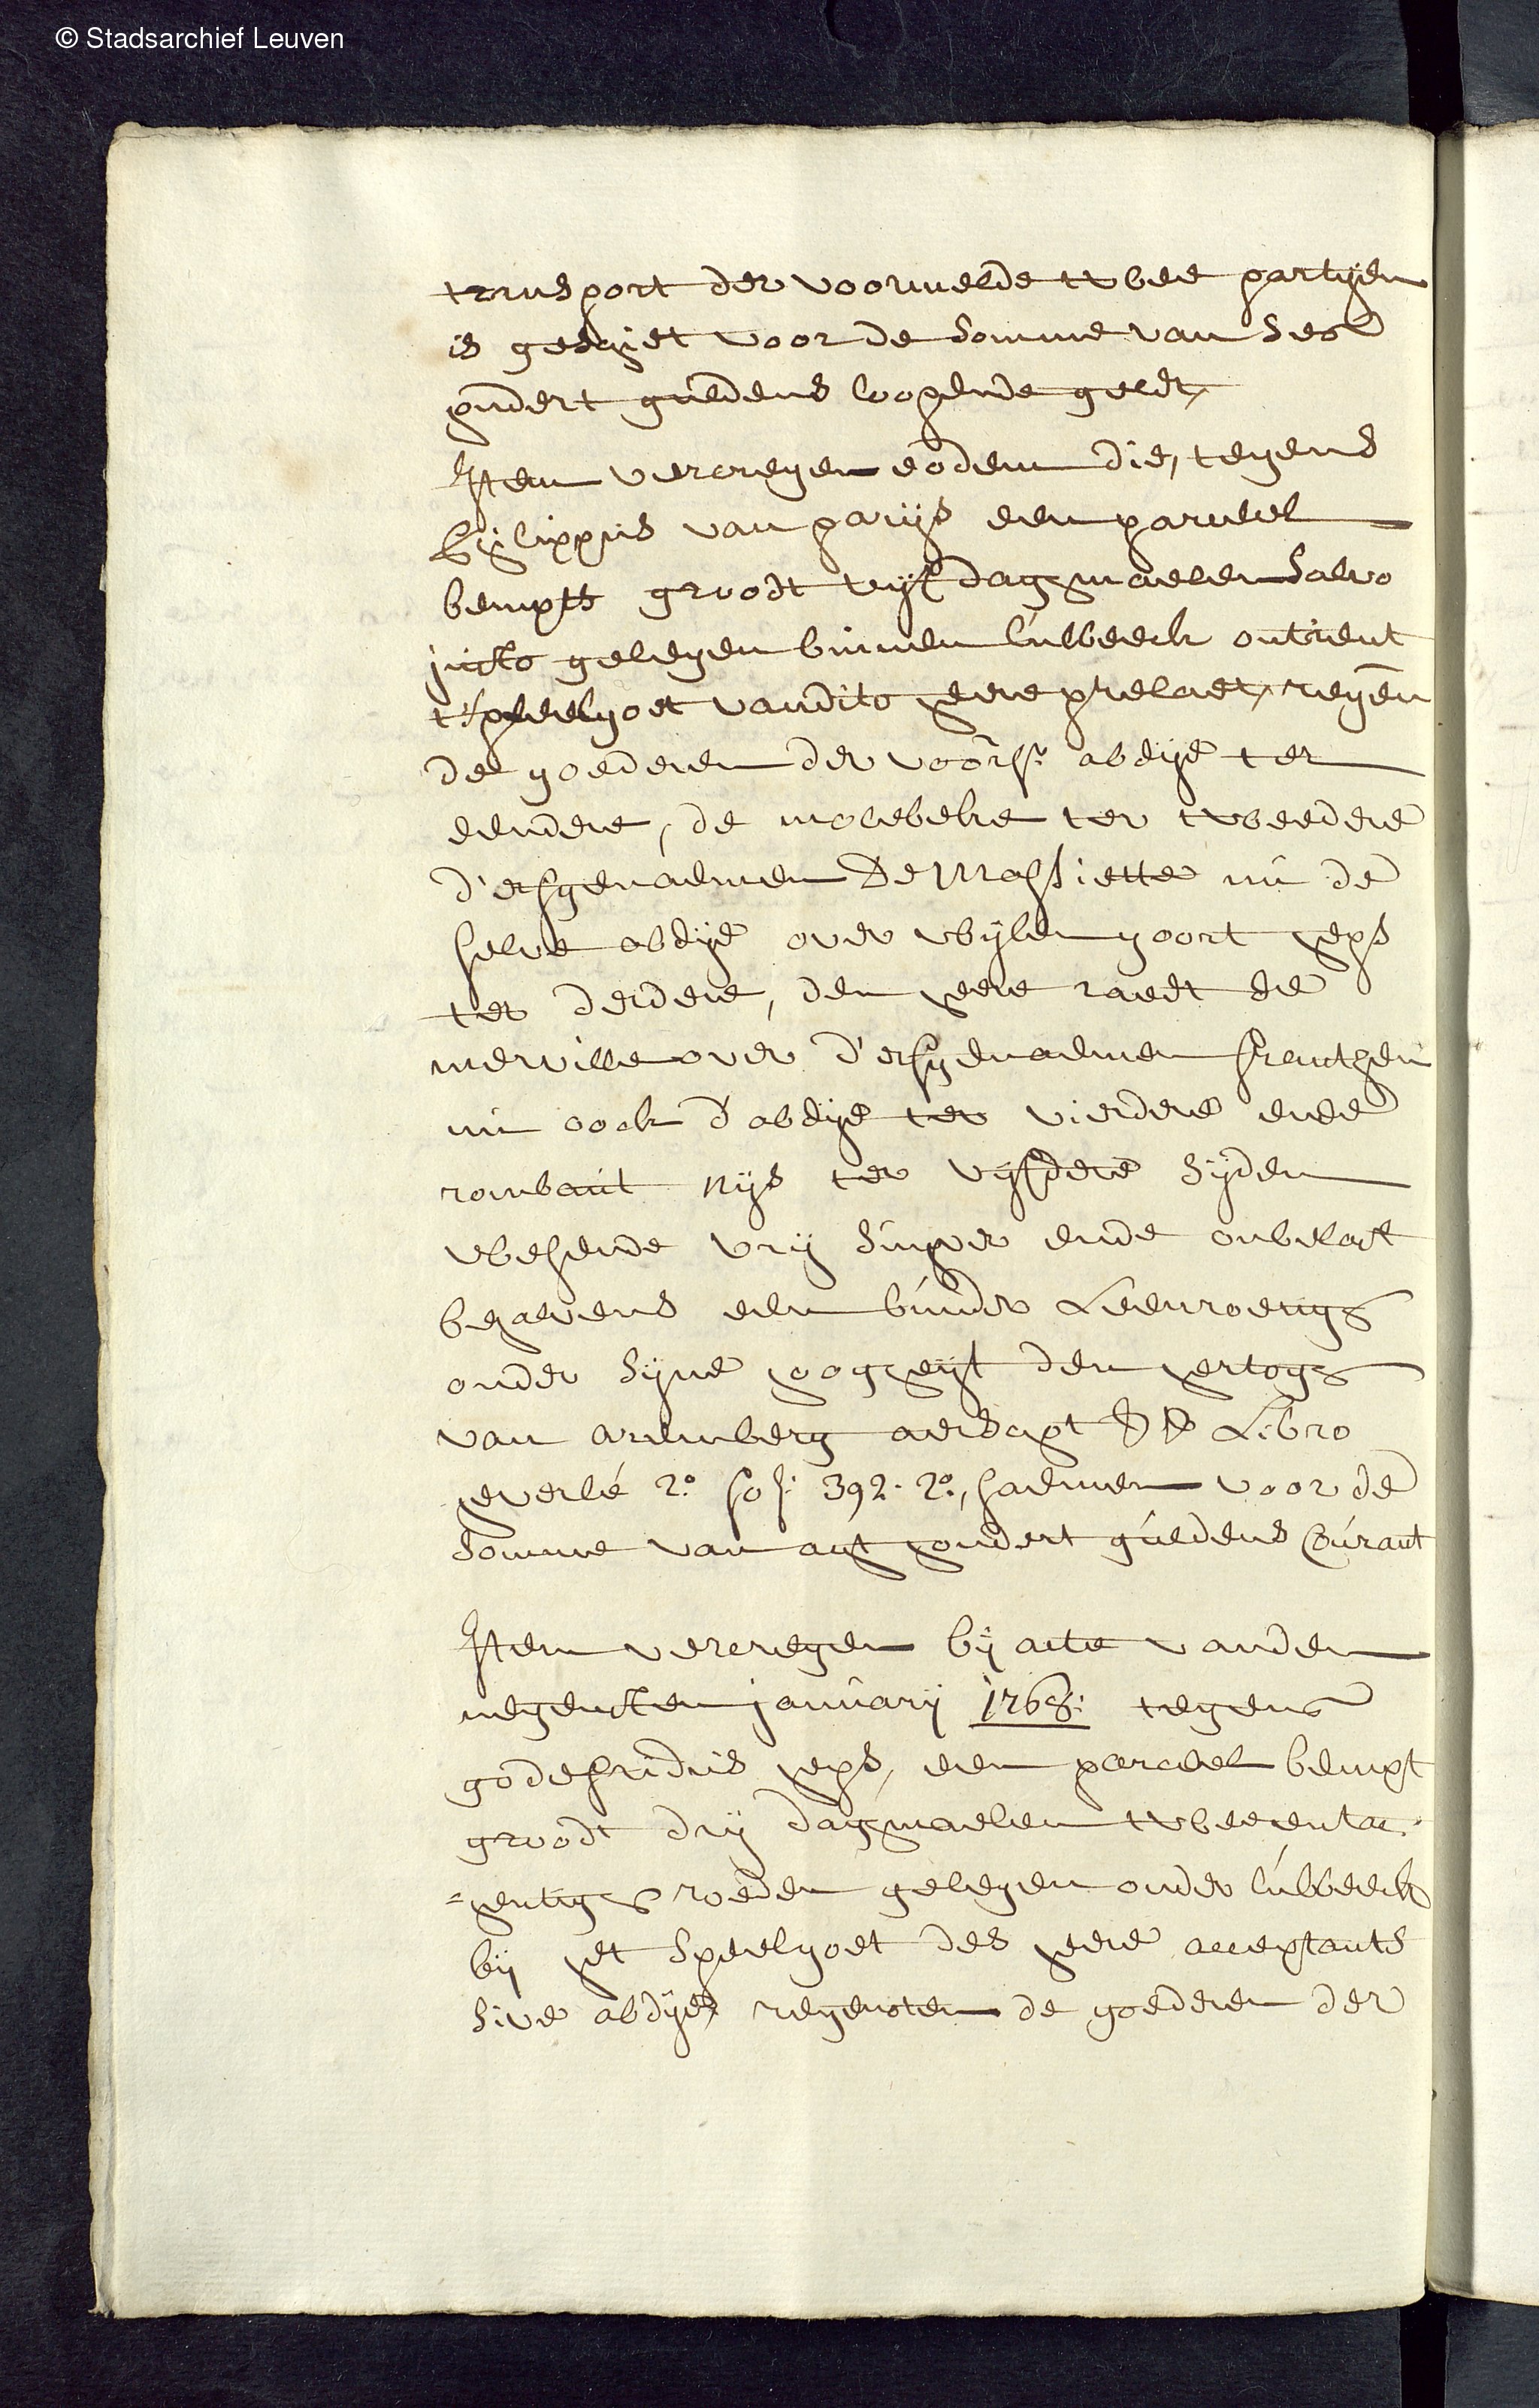 © Stadsarchief Leuven
transport der voormelde twee partijen
is geschiet voor de somme van ses
hondert guldens loopende geldt,
Item vercregen eodem die, tegens
philippus van parijs een parceel
bempts groodt vijf daghmaelen salvo
justo gelegen binnen lubbeeck ontrent
t'speelhoet van dito heere prelaet, regen
de goederen der voors: abdije ter
eendere, de molebeke ter tweedere
d'erfgenaemen De Massiette nu de
selve abdije over wijlen goort heps
ter derdere, den heere raedt de
merville over d'erfgenaemen
nu oock d'abdije ter vierdere ende
rombaut nijs ter vijfdere sijden
wesende vrij suyver ende onbelast
behalvens een bunder Leenroerigh
onder sijne hoogheijt den hertogh
van aremberg aerschot &a Libro
heverlé 2º fol: 392. 2º, saemen voor de
somme van agt hondert guldens Courant
Item vercregen bij acte vanden
negensten januarij 1768: tegens
godefridus heps, een parceel bempt
groodt drij daghmaelen tweeentac
=hentigh roeden gelegen onder lubbeeck
bij het speelhoet des heere acceptants
sive abdije, regenoten de goederen der